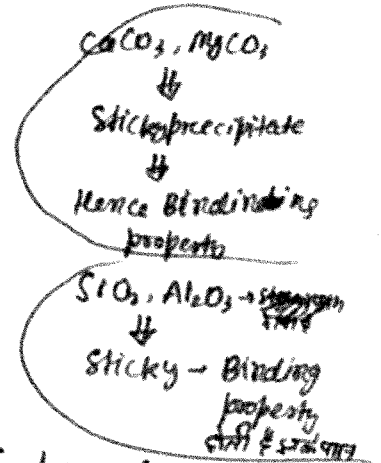 CaCO3, MgCO3
⇓
Sticky precipitate
⇓
Hence Bindinding
property
SiO2, Al2O3 →
⇓
Sticky → Binding
property